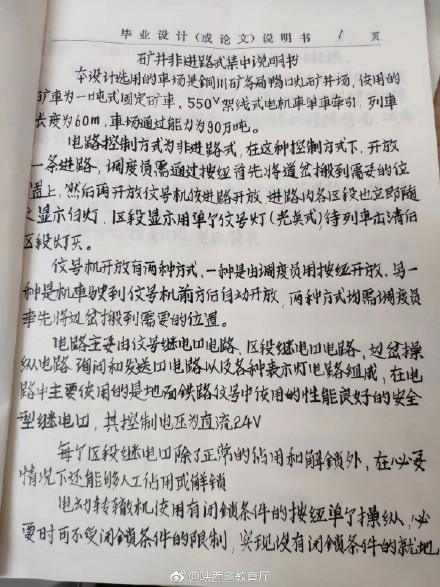 毕业设计(或论文)说明书 1 页
矿井非进路式集中说明书
本设计选用的车场是铜川矿务局鸭口灿矿井场,使用的
矿车为一吨式固定矿车,550V架线式电机车单車牵引,列車
长度为60m,車场通过能力为90万吨。
电路控制方式为非进路式,在这种控制方式下,开放
一条进路,调度员需通过按纽首先将道岔搬到需要的位
置上,然后再开放仪号机使进路开放 进路内各区段也立即随
之显示白灯,区段显示用单个仪号灯(光矢式)待列車出清后
区段灯灭。
仪号机开放有两种方式,一种是由调度员用按纽开放,另一
种是机車驶到仪号机前方后自动开放,两种方式均需调度员
事先将道岔搬到需要的位置。
电路主要由仪号继电口电路、区段继电口电路、道岔操
纵电路 询问和发送口电路以及各种表示灯电路组成,在电
路中主要使用的是地面铁路仪号中使用的性能良好的安全
型继电口,其控制电压为直流24V
每个区段继电口除了正常的佔用和解鎖外,在必要
情况下还能够人工佔用或解鎖
电动转辙机使用有闭鎖条件的按纽单个操纵,必
要时可不受闭鎖条件的限制,实现没有闭鎖条件的就地
@陕西省教育厅